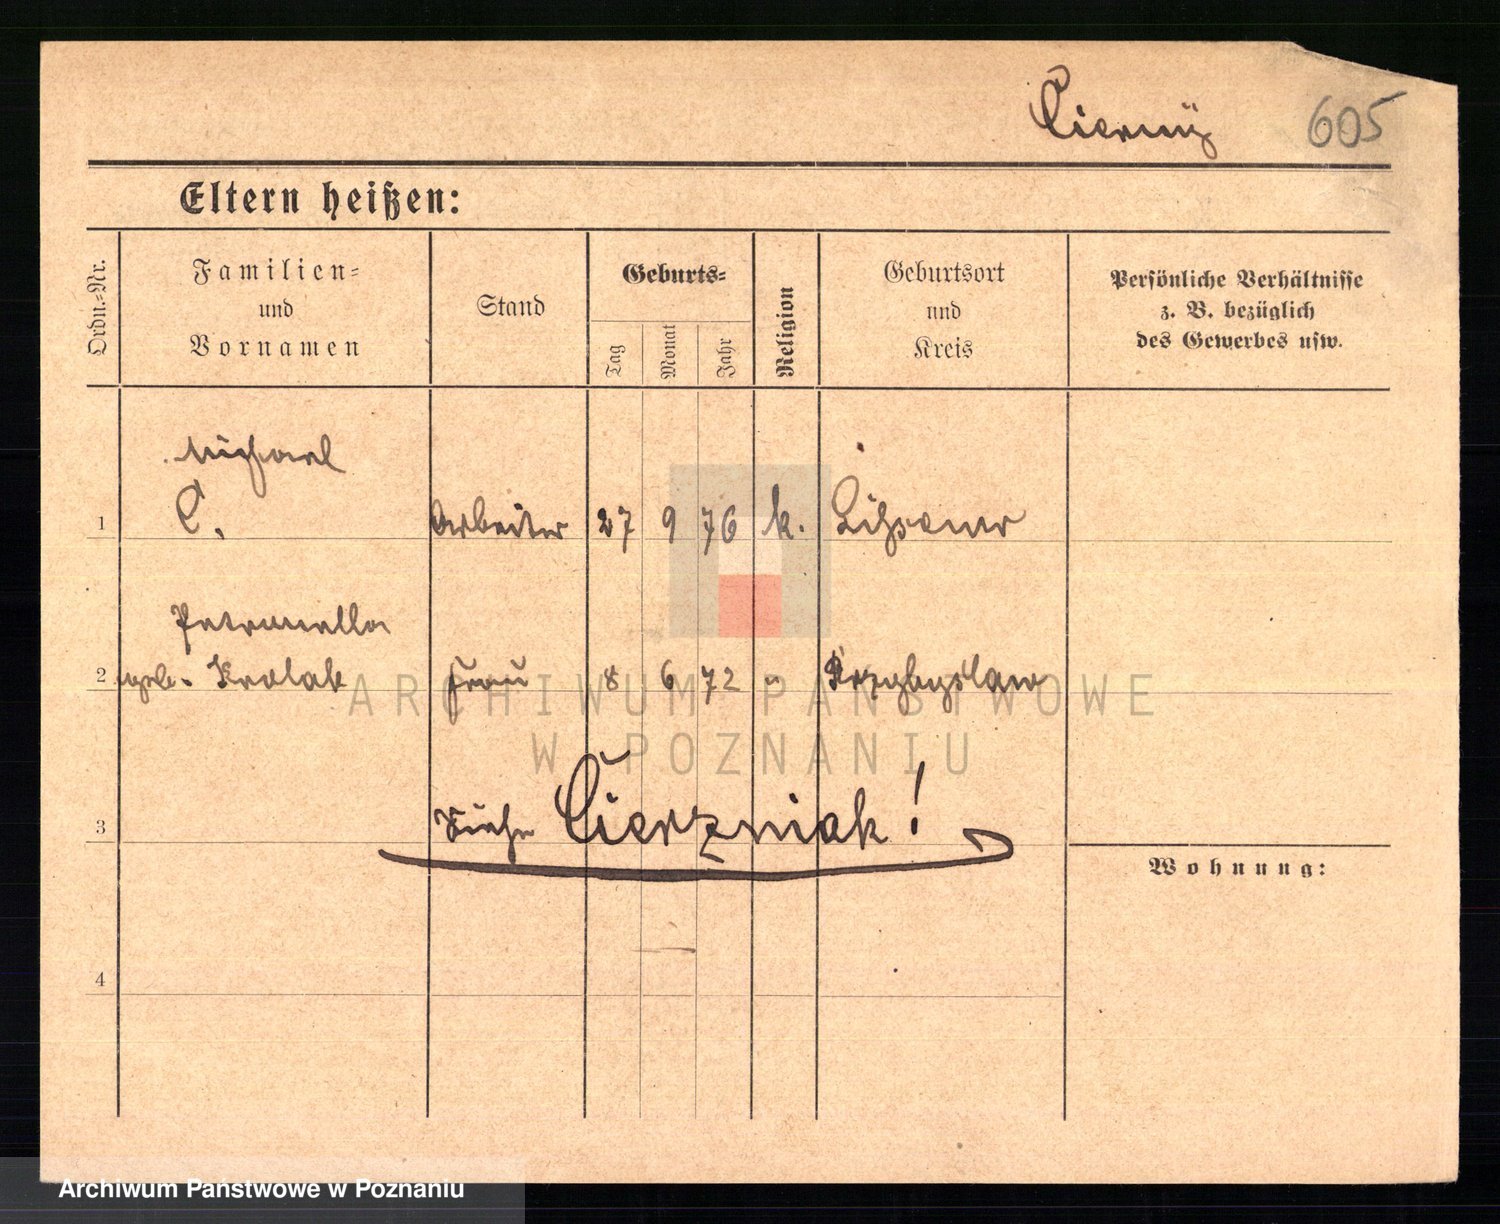 605
Eltern heißen:
Ordn.-Nr.
Familien- und Vornamen
Stand
Geburts-
Tag
Monat
Jahr
Religion
Geburtsort und Kreis
Persönliche Verhältnisse z. B. bezüglich des Gewerbes usw.
Michael
1 C. Arbeiter 27 9 76 k.
Petronella
2 geb. Krolak Frau 8 6 72 "
ARCHIWUM PAŃSTWOWE
W POZNANIU
3 Siehe Cierzniak!
Wohnung:
4
Archiwum Państwowe w Poznaniu